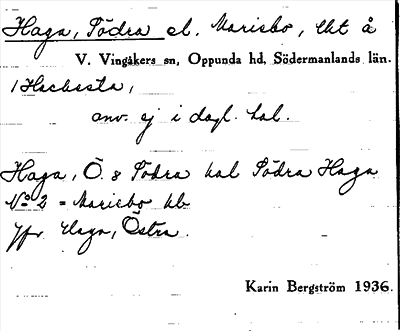 Haga, Södra el. Mariebo, lht å
V. Vingåkers sn, Oppunda hd, Södermanlands län.
/ Hacksta,
anv. ej i dagl. tal.
Haga, Ö. & Södra kal Södra Haga
No 2 = Mariebo kb
Jfr Haga, Östra.
Karin Bergström 1936.